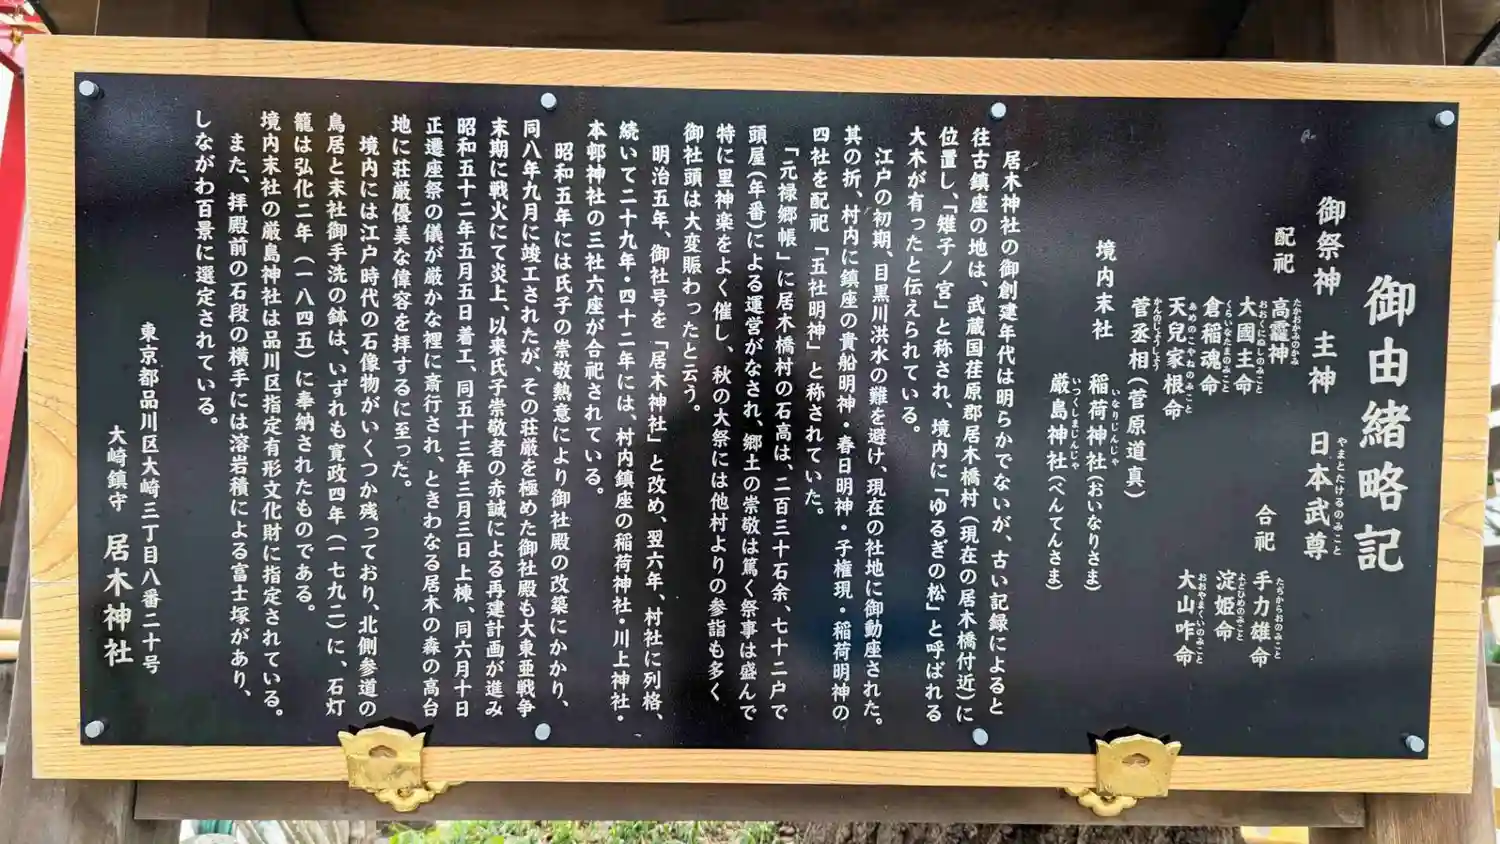 御由緒略記
御祭神　主神　日本武尊
やまとたけるのみこと
配祀
高龗神
たかおかみのかみ
大國主命
おおくにぬしのみこと
倉稲魂命
くらいなたまのみこと
天兒家根命
あめのこやねのみこと
菅丞相（菅原道真）
かんのじょうしょう
合祀
手力雄命
たぢからおのみこと
淀姫命
よどひめのみこと
大山咋命
おおやまくいのみこと
境内末社
稲荷神社（おいなりさま）
いなりじんじゃ
厳島神社（べんてんさま）
いつくしまじんじゃ
居木神社の御創建年代は明らかでないが、古い記録によると
往古鎮座の地は、武蔵国荏原郡居木橋村（現在の居木橋付近）に
位置し、「雉子ノ宮」と称され、境内に「ゆるぎの松」と呼ばれる
大木が有ったと伝えられている。
江戸の初期、目黒川洪水の難を避け、現在の社地に御動座された。
其の折、村内に鎮座の貴船明神・春日明神・子権現・稲荷明神の
四社を配祀　「五社明神」と称されていた。
「元禄郷帳」に居木橋村の石高は、二百三十石余、七十二戸で
頭屋（年番）による運営がなされ、郷土の崇敬は篤く祭事は盛んで
特に里神楽をよく催し、秋の大祭には他村よりの参詣も多く
御社頭は大変賑わったと云う。
明治五年、御社号を「居木神社」と改め、翌六年、村社に列格、
続いて二十九年・四十二年には、村内鎮座の稲荷神社・川上神社・
本邨神社の三社六座が合祀されている。
昭和五年には氏子の崇敬熱意により御社殿の改築にかかり、
同八年九月に竣工されたが、その荘厳を極めた御社殿も大東亜戦争
末期に戦火にて炎上、以来氏子崇敬者の赤誠による再建計画が進み
昭和五十二年五月五日着工、同五十三年三月三日上棟、同六月十日
正遷座祭の儀が厳かな裡に斎行され、ときわなる居木の森の高台
地に荘厳優美な偉容を拝するに至った。
境内には江戸時代の石像物がいくつか残っており、北側参道の
鳥居と末社御手洗の鉢は、いずれも寛政四年（一七九二）に、石灯
籠は弘化二年（一八四五）に奉納されたものである。
境内末社の厳島神社は品川区指定有形文化財に指定されている。
また、拝殿前の石段の横手には溶岩積による富士塚があり、
しながわ百景に選定されている。
東京都品川区大崎三丁目八番二十号
大崎鎮守　居木神社